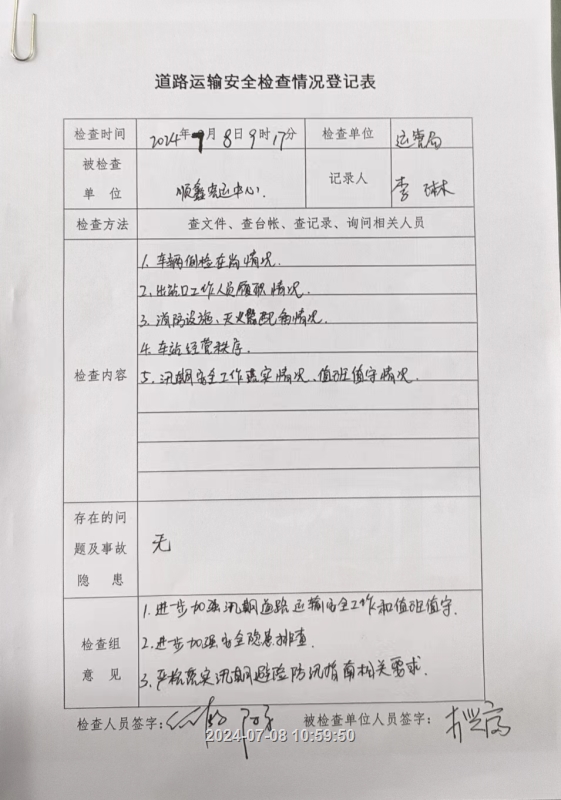 道路运输安全检查情况登记表
检查时间 2024年7月8日9时17分 检查单位 运管局
被检查单位 顺鑫客运中心. 记录人 李琳
检查方法 查文件、查台帐、查记录、询问相关人员
检查内容
1.车辆例检在岗情况.
2.出站口工作人员履职情况.
3.消防设施、灭火器配备情况.
4.车站经营秩序.
5.汛期安全工作落实情况、值班值守情况.
存在的问题及事故隐患 无
检查组意见
1.进步加强汛期道路运输安全工作和值班值守.
2.进步加强安全隐患排查.
3.严格落实汛期避险防汛指南相关要求.
检查人员签字: 被检查单位人员签字:
2024-07-08 10:59:50